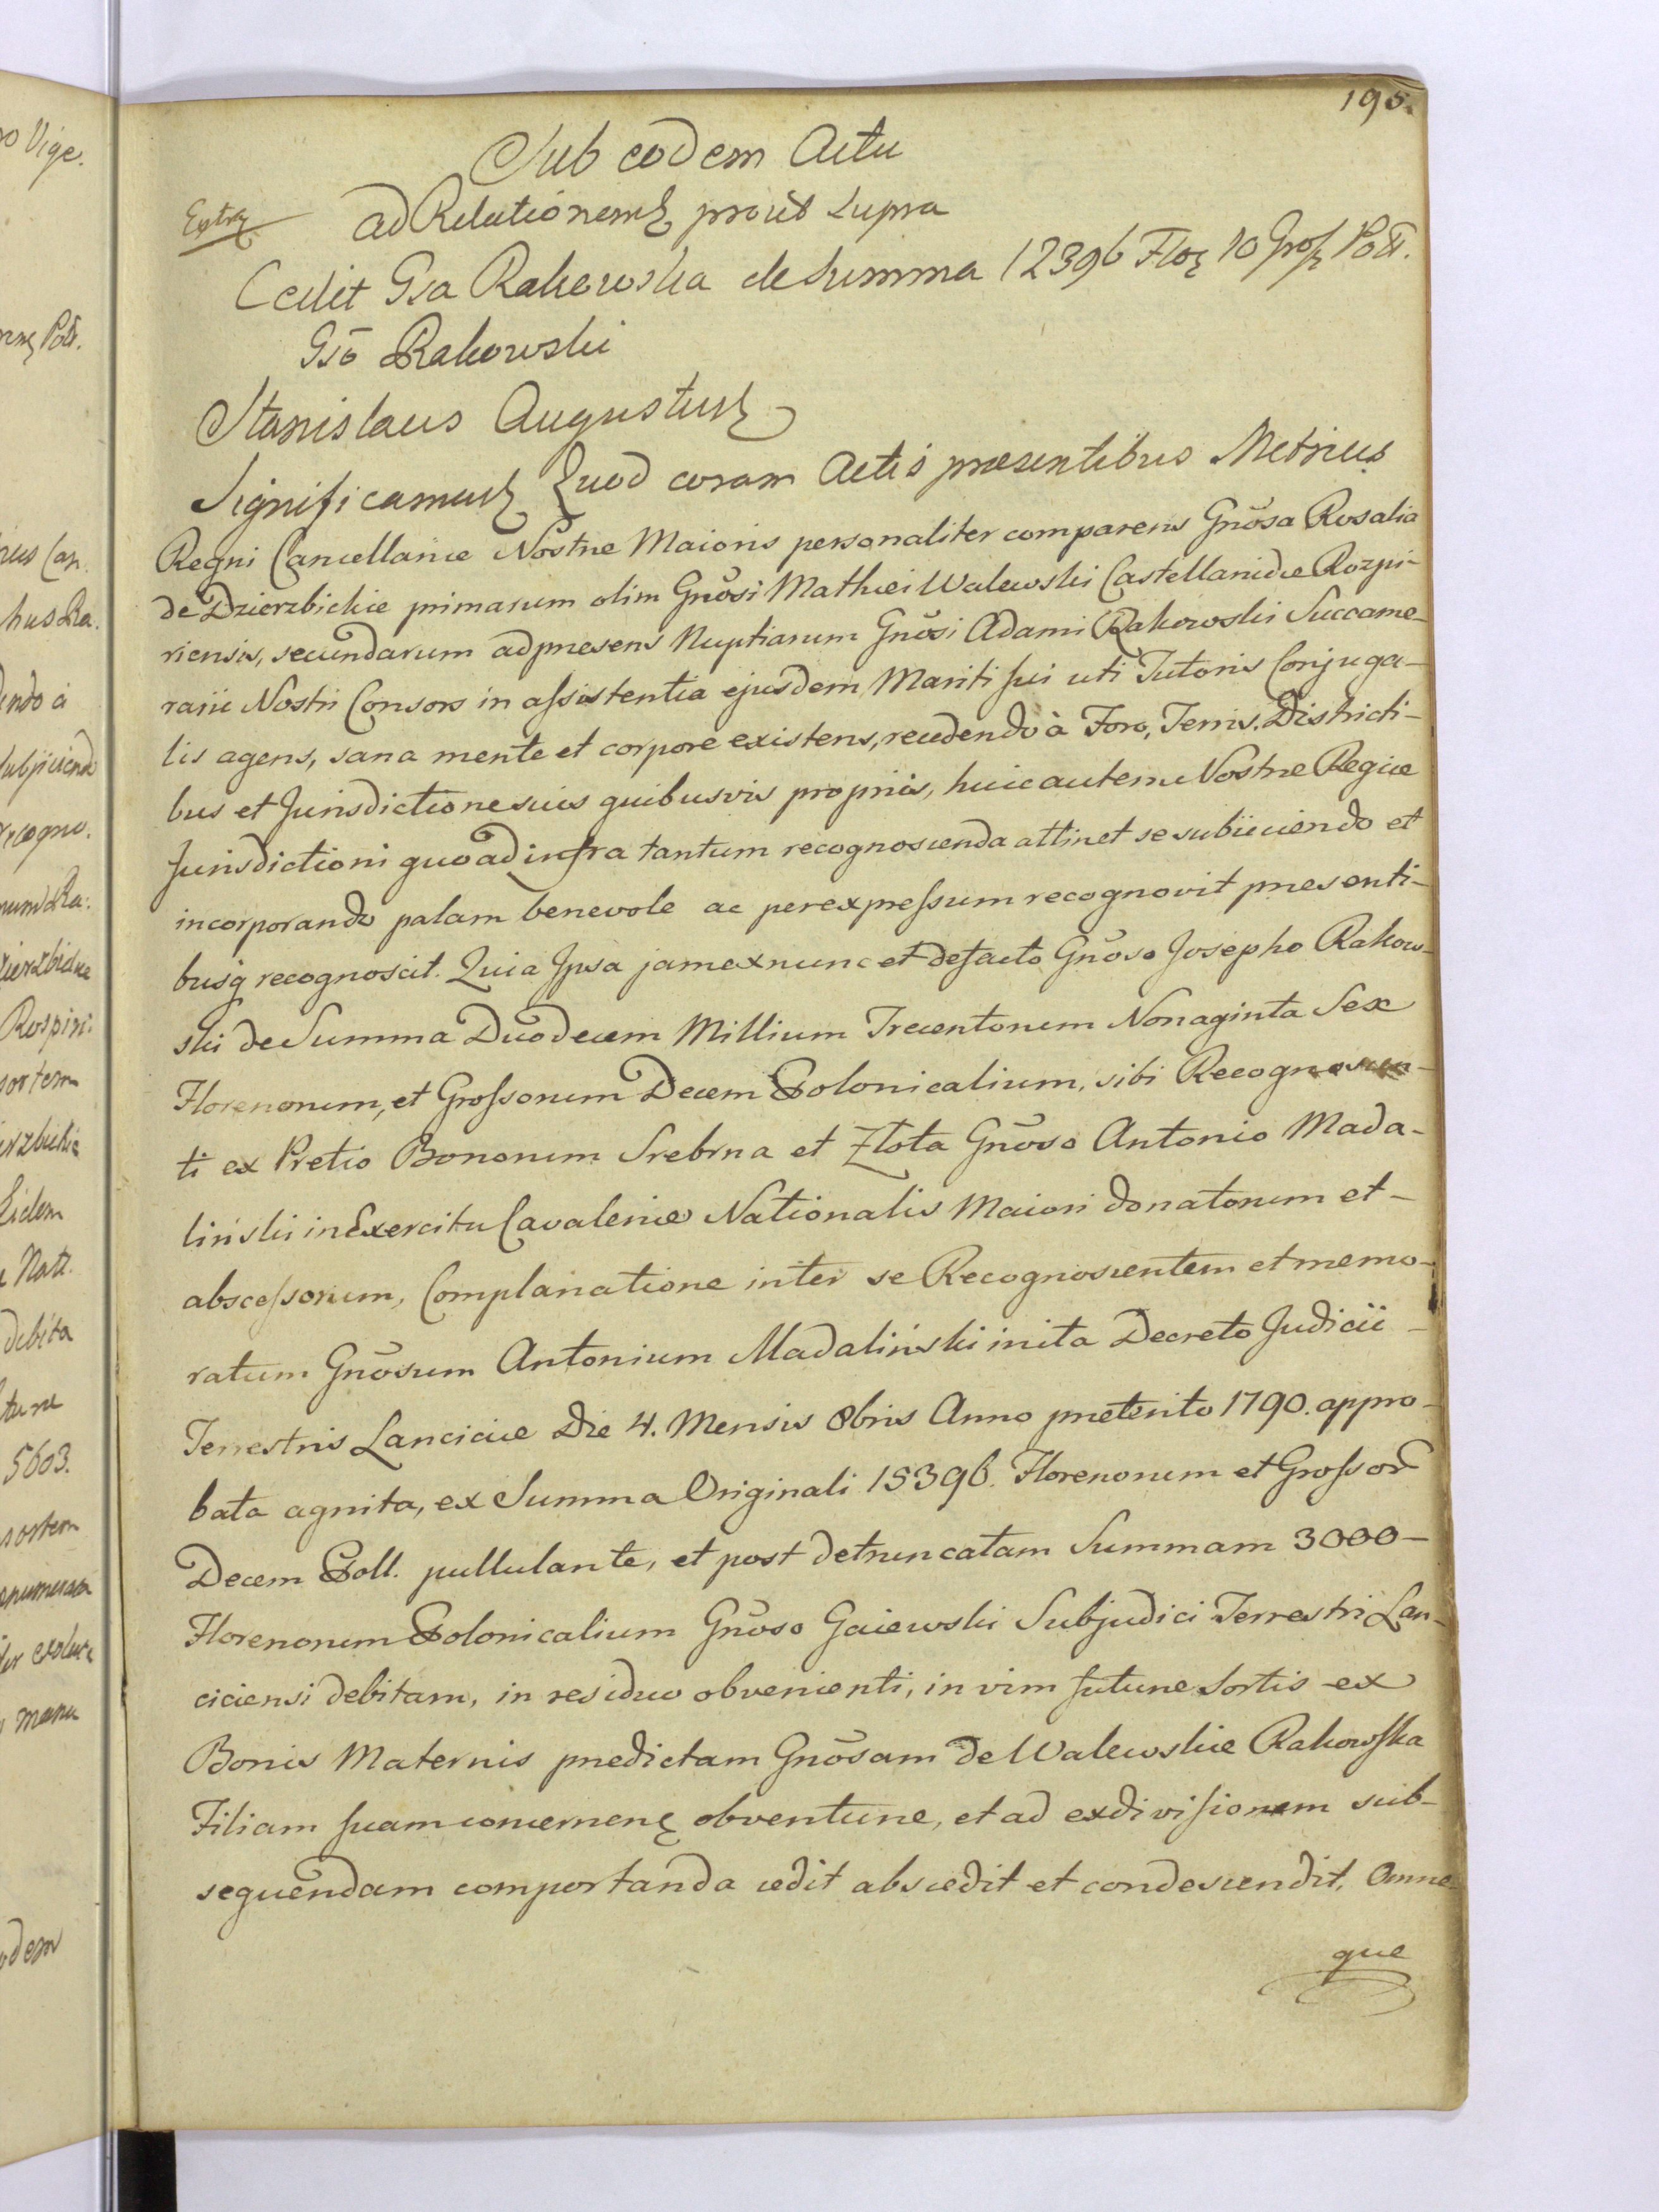 195.
Sub eodem Actu
Extr
ad Relationem prout supra
Cedit Gsa Rakowska de Summa 12396 Flor 10 Gross Poll.
Gso Rakowski
Stanislaus Augustus
Significamus Quod coram Actis præsentibus Metrices
Regni Cancellariæ Nostræ Maioris personaliter comparens Gnõsa Rosalia
de Dzierzbickie primarum olim Gnõsi Mathæi Walewski Castellanidæ Rozpi-
riensis, secundarum ad præsens Nuptiarum Gnõsi Adami Rakowski Succame-
rarii Nostri Consors in assistentia ejusdem Mariti sui uti Tutoris Conjuga-
lis agens, sana mente et corpore existens, recedendo à Foro, Terris, Districti-
bus et Jurisdictione suis quibusvis propriis, huic autem Nostræ Regiæ
Jurisdictioni quo ad infra tantum recognoscenda attinet se subiiciendo et
incorporando palam benevole ac per expressum recognovit præsenti-
busq recognoscit. Quia Ipsa jam ex nunc et de facto Gnõso Josepho Rakow-
ski de Summa Duodecem Millium Trecentorum Nonaginta Sex
Florenorum, et Grossorum Decem Polonicalium, sibi Recognoscen-
ti ex Pretio Bonorum Srebrna et Złota Gnõso Antonio Mada-
linski in Exercitu Cavaleriæ Nationalis Maiori donatorum et-
abscessorum, Complanatione inter se Recognoscentem et memo-
ratum Gnõsum Antonium Madaliński inita Decreto Judicii-
Terrestris Lanciciæ Die 4. Mensis 8bris Anno præterito 1790. appro-
bata agnita, ex Summa Originali 15396. Florenorum et Grossor
Decem Poll. pullulante, et post detruncatam Summam 3000-
Florenorum Polonicalium Gnõso Gaiewski Subjudici Terrestri Lan-
ciciensi debitam, in residuo obvenienti, in vim futuræ Sortis ex
Bonis Maternis prædictam Gnõsam de Walewskie Rakowska
Filiam suam concernen obventuræ, et ad exdivisionem sub-
sequendam comportanda cedit abscedit et condescendit, Omne-
que